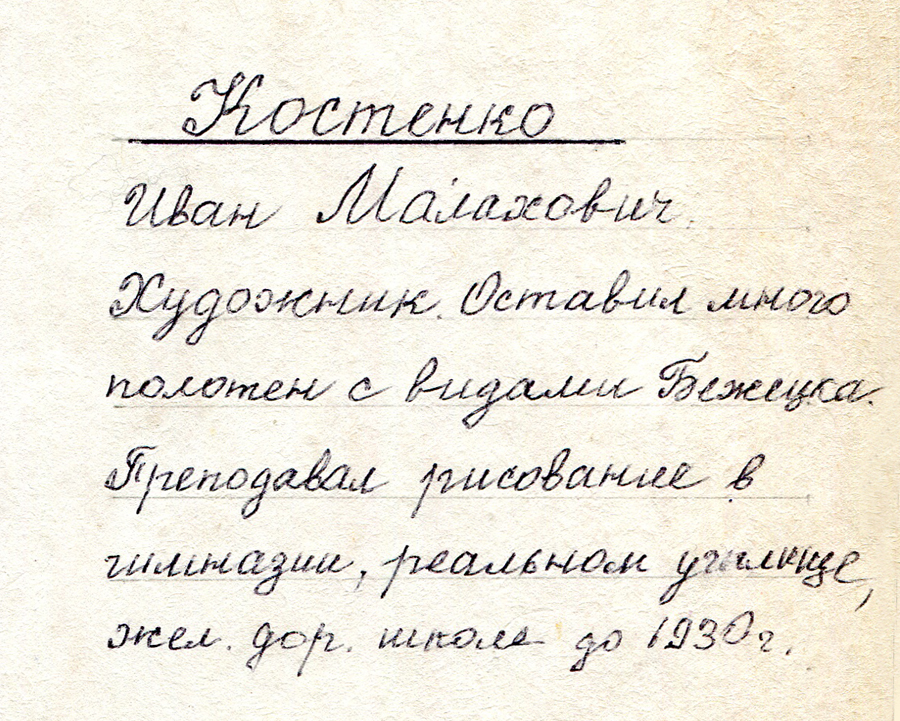 Костенко
Иван Малахович.
Художник. Оставил много
полотен с видами Бежецка.
Преподавал рисование в
гимназии, реальном училище,
жел. дор. школе до 1930 г.